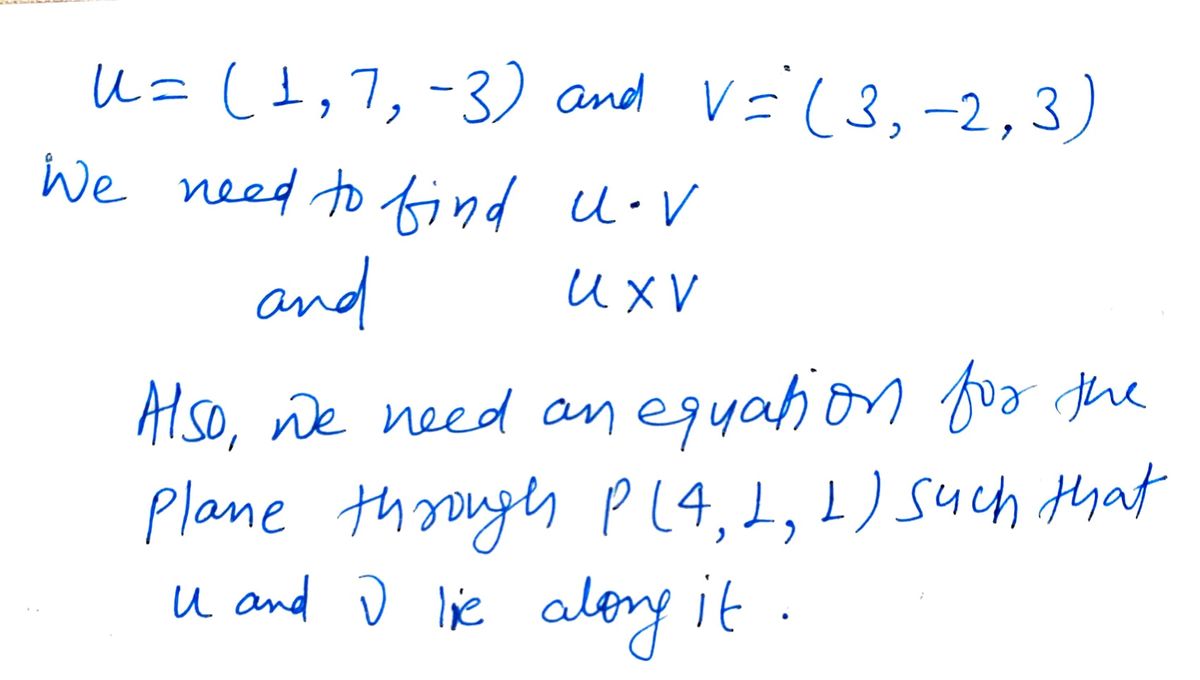 u = (1, 7, -3) and v = (3, -2, 3)
We need to find u · v
and u × v
Also, we need an equation for the
plane through P(4, 1, 1) such that
u and v lie along it.